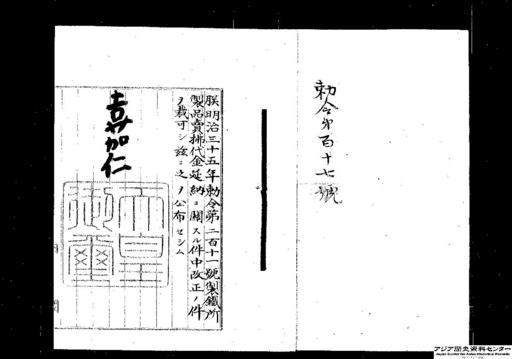 勅令第百十七號
朕明治三十五年勅令第二百十一號製鐵所
製品賣拂代金延納ニ關スル件中改正ノ件
ヲ裁可シ茲ニ之ヲ公布セシム
嘉仁
天皇
御璽
アジア歴史資料センター
Japan Center for Asian Historical Records